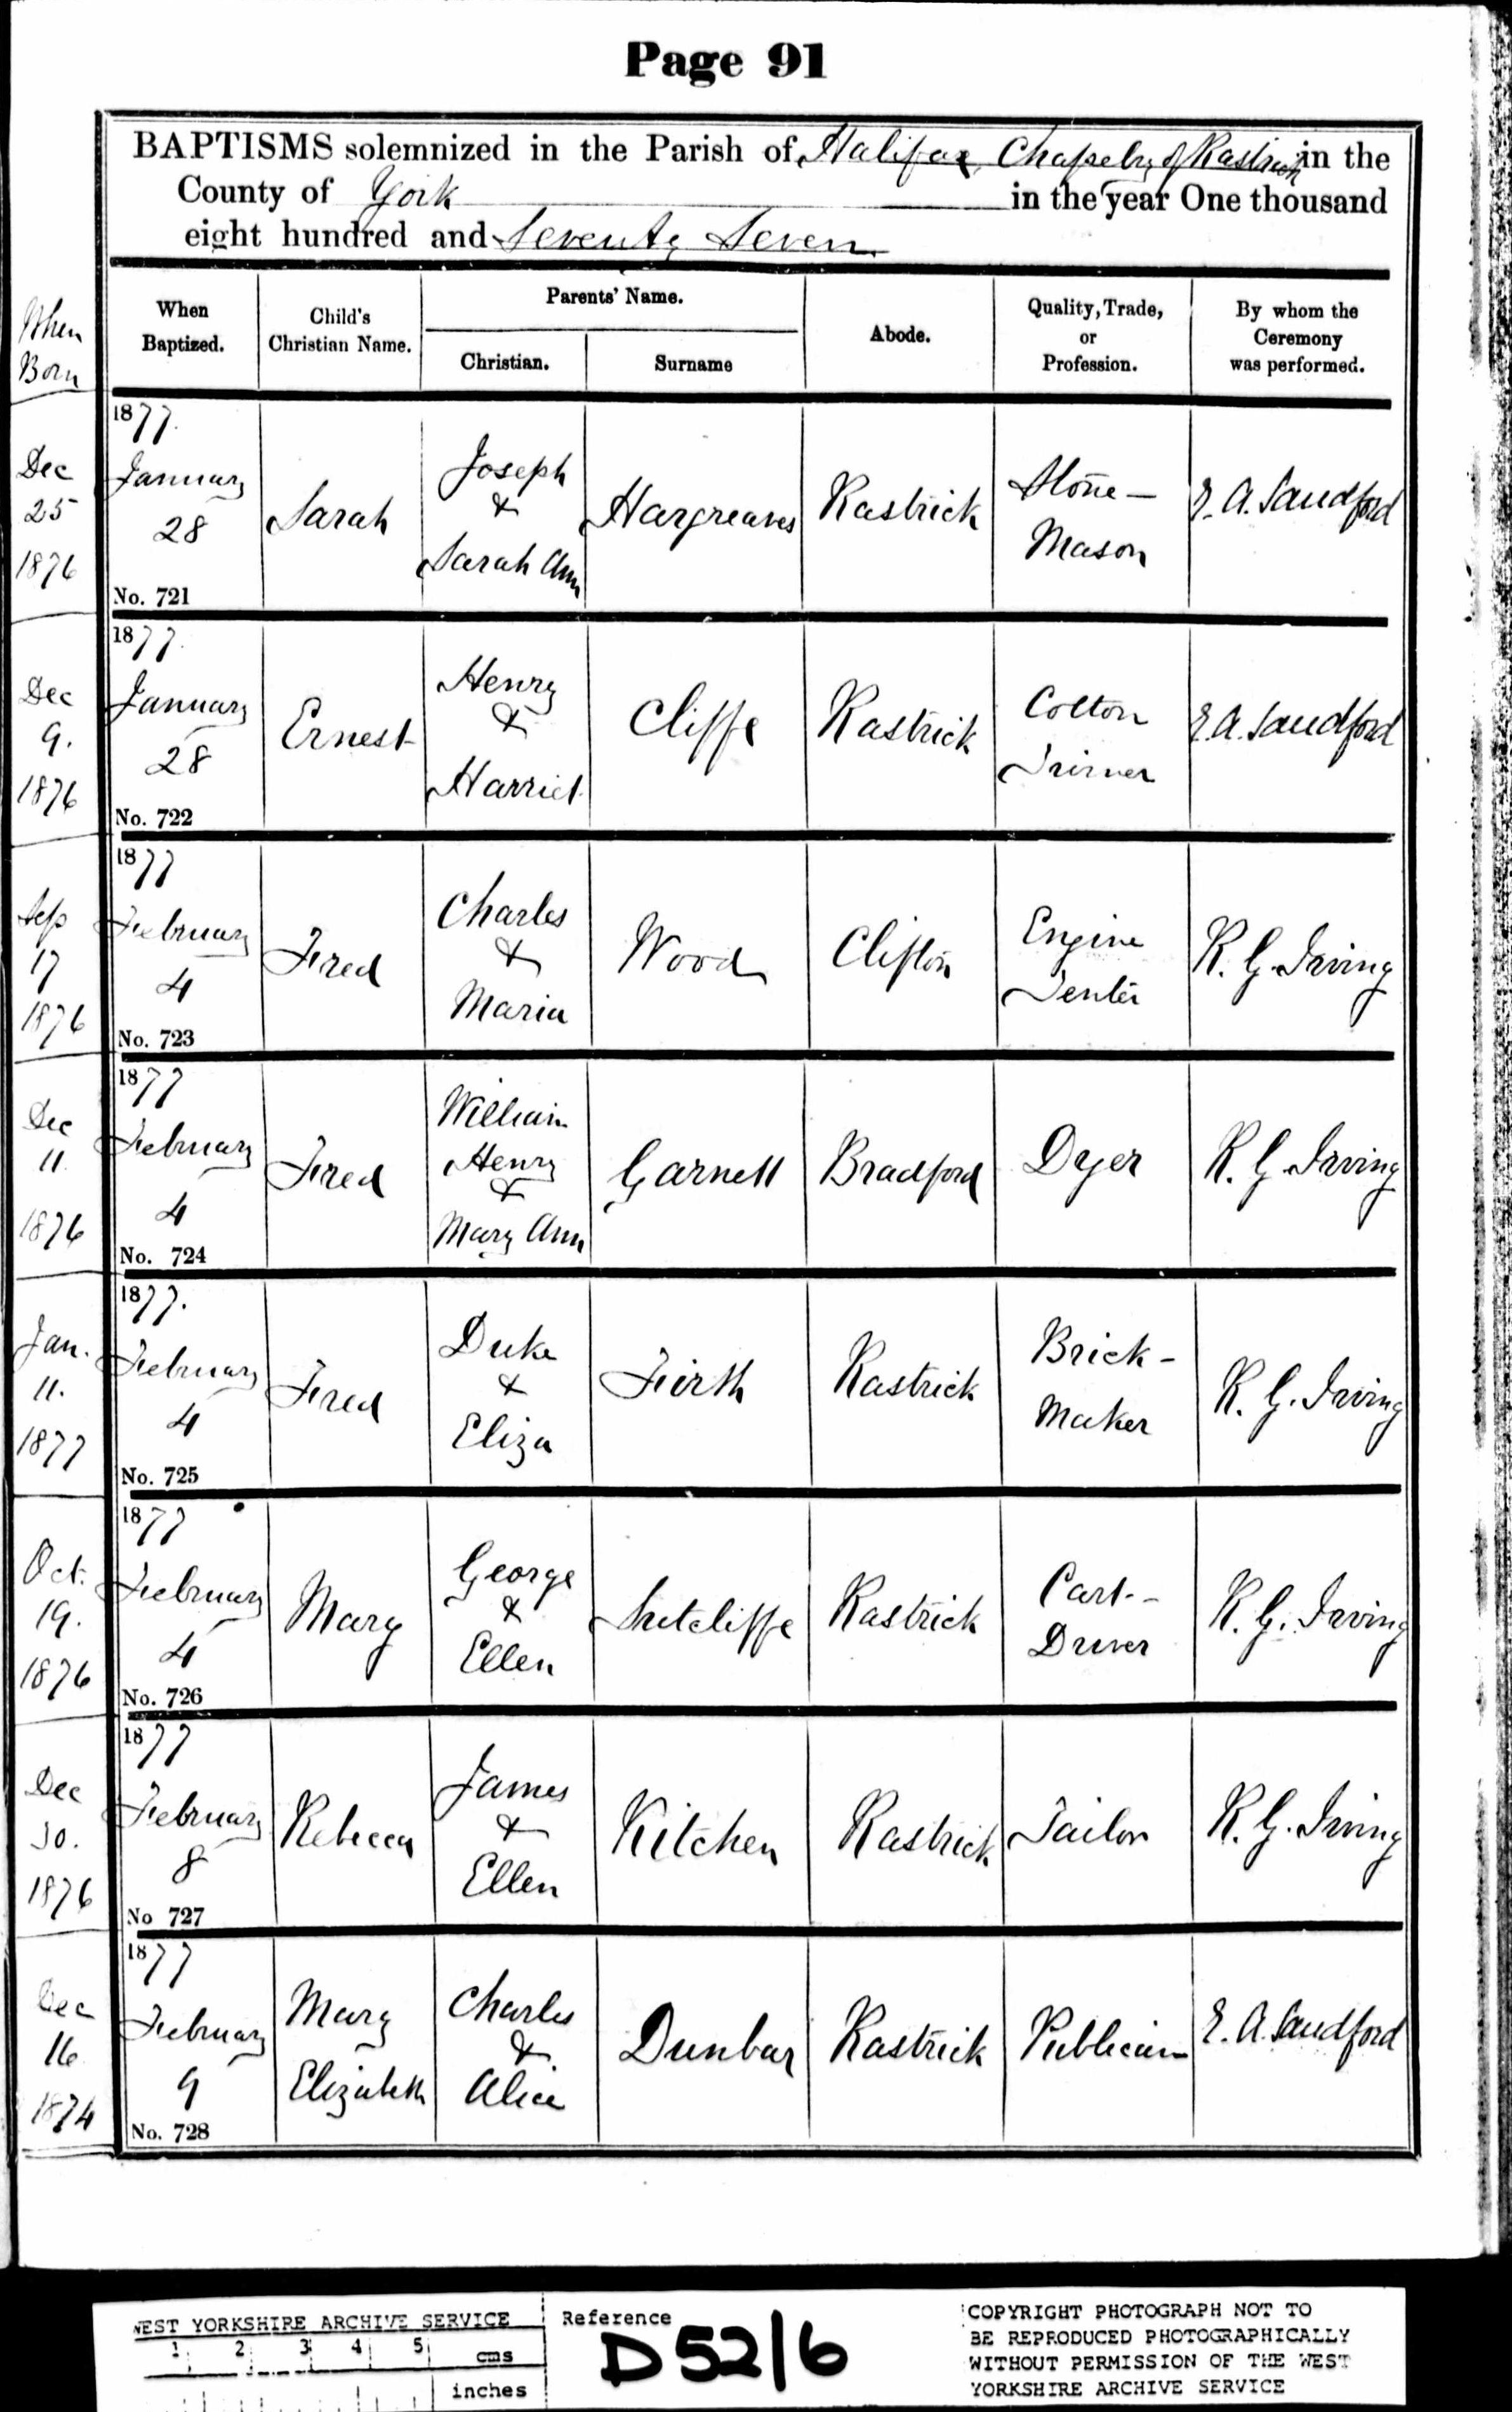 Page 91
BAPTISMS solemnized in the Parish of Halifax, Chapelry of Rastrick in the
County of York in the year One thousand
eight hundred and Seventy Seven
When
Born
When
Baptized.
Child's
Christian Name.
Parents' Name.
Christian.
Surname
Abode.
Quality, Trade,
or
Profession.
By whom the
Ceremony
was performed.
Dec
25
1876
1877.
January
28
No. 721
Sarah
Joseph
&
Sarah Ann
Hargreaves
Rastrick
Stone-
Mason
E. A. Sandford
Dec
9.
1876
1877.
January
28
No. 722
Ernest
Henry
&
Harriet
Cliffe
Rastrick
Cotton
E. A. Sandford
Sep
17
1876
1877
February
4
No. 723
Fred
Charles
&
Maria
Wood
Clifton
Engine
Tenter
R. G. Irving
Dec
11.
1876
1877
February
4
No. 724
Fred
William
Henry
&
Mary Ann
Garnett
Bradford
Dyer
R. G. Irving
Jan.
11.
1877
1877.
February
4
No. 725
Fred
Duke
&
Eliza
Firth
Rastrick
Brick-
Maker
R. G. Irving
Oct.
19.
1876
1877
February
4
No. 726
Mary
George
&
Ellen
Sutcliffe
Rastrick
Cart-
Driver
R. G. Irving
Dec
30.
1876
1877
February
8
No 727
Rebecca
James
&
Ellen
Kitchen
Rastrick
Tailor
R. G. Irving
Dec
16
1874
1877
February
9
No. 728
Mary
Elizabeth
Charles
&
Alice
Dunbar
Rastrick
Publican
E. A. Sandford
WEST YORKSHIRE ARCHIVE SERVICE
1 2 3 4 5 cms
inches
Reference
D52/6
COPYRIGHT PHOTOGRAPH NOT TO
BE REPRODUCED PHOTOGRAPHICALLY
WITHOUT PERMISSION OF THE WEST
YORKSHIRE ARCHIVE SERVICE